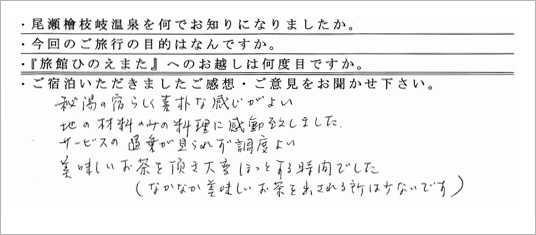 ・尾瀬檜枝岐温泉を何でお知りになりましたか。
・今回のご旅行の目的はなんですか。
・『旅館ひのえまた』へのお越しは何度目ですか。
・ご宿泊いただきましたご感想・ご意見をお聞かせ下さい。
秘湯の宿らしく素朴な感じがよい
地の材料のみの料理に感動致しました.
サービスの過重が見られず調度よい
美味しいお茶を頂き大変ほっとする時間でした
(なかなか美味しいお茶を出される所は少ないです)